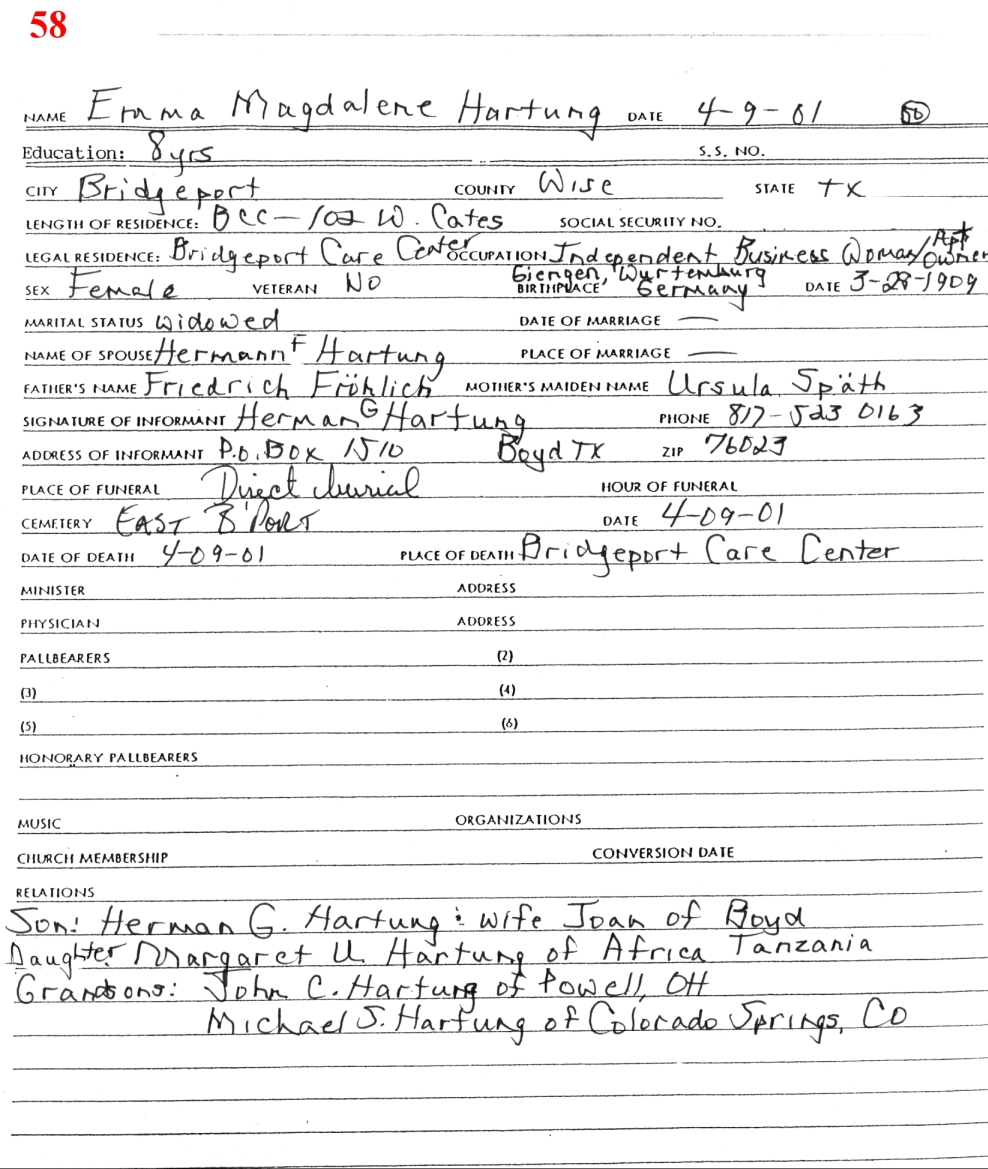 58
NAME Emma Magdalene Hartung DATE 4-9-01 58
Education: 8 yrs S.S. NO.
CITY Bridgeport COUNTY Wise STATE TX
LENGTH OF RESIDENCE: BCC - 102 W. Cates SOCIAL SECURITY NO.
LEGAL RESIDENCE: Bridgeport Care Center OCCUPATION Independent Business Woman/Apt Owner
SEX Female VETERAN No BIRTHPLACE Giengen, Wurtemburg Germany DATE 3-28-1909
MARITAL STATUS widowed DATE OF MARRIAGE —
NAME OF SPOUSE Hermann F Hartung PLACE OF MARRIAGE —
FATHER'S NAME Friedrich Fröhlich MOTHER'S MAIDEN NAME Ursula Späth
SIGNATURE OF INFORMANT Herman G Hartung PHONE 817-523 0163
ADDRESS OF INFORMANT P.O. Box 1510 Boyd TX ZIP 76023
PLACE OF FUNERAL Direct burial HOUR OF FUNERAL
CEMETERY EAST B'PORT DATE 4-09-01
DATE OF DEATH 4-09-01 PLACE OF DEATH Bridgeport Care Center
MINISTER ADDRESS
PHYSICIAN ADDRESS
PALLBEARERS (2)
(3) (4)
(5) (6)
HONORARY PALLBEARERS
MUSIC ORGANIZATIONS
CHURCH MEMBERSHIP CONVERSION DATE
RELATIONS
Son: Herman G. Hartung: wife Joan of Boyd
Daughter Margaret U. Hartung of Africa Tanzania
Grandsons: John C. Hartung of Powell, OH
Michael S. Hartung of Colorado Springs, CO